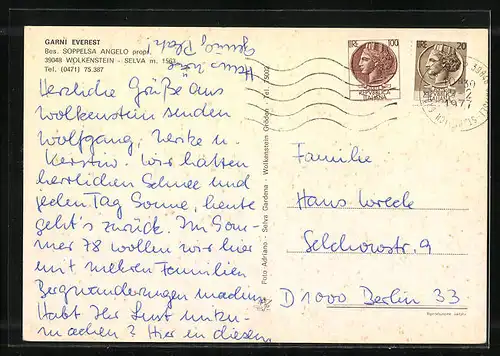 GARNI EVEREST
Bes. SOPPELSA ANGELO propr.
39048 WOLKENSTEIN - SELVA m. 1563
Tel. (0471) 75.387
Herzliche Grüße aus
Wolkenstein senden
Wolfgang, Heike u.
Kerstin. Wir hatten
herrlichen Schnee und
jeden Tag Sonne, heute
geht's zurück. Im Som-
mer 78 wollen wir hier
mit mehren Familien
Bergwanderungen machen.
Habt Ihr Lust mitzu-
machen? Hier in diesem
Haus wäre
genug Platz
Foto Adriano - Selva Gardena - Wolkenstein Gröden - Tel. 75032
LIRE 100
REPUBBLICA
ITALIANA
LIRE 20
REPUBBLICA
ITALIANA
1977
Familie
Hans Wrede
Selchowstr. 9
D 1000 Berlin 33